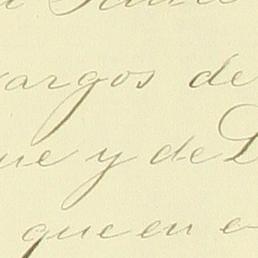 argos de
que y de L
que en e